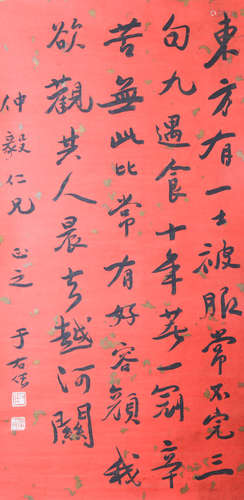 東方有一士被服常不完三
旬九遇食十年著一冠辛
苦無此比常有好容顏我
欲觀其人晨去越河關
仲毅仁兄正之 于右任